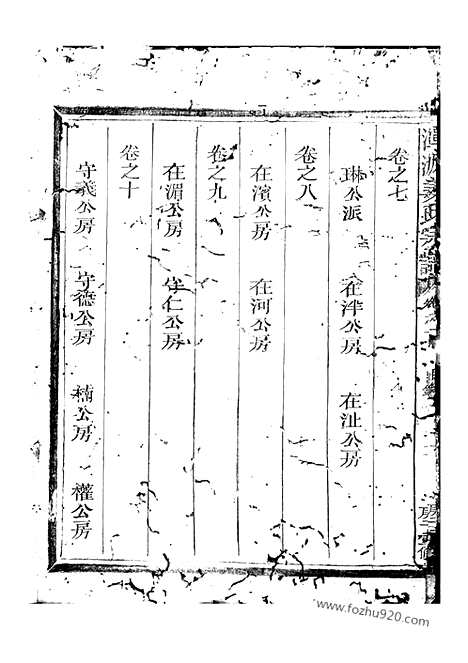 卷之七
琳公派 在泮公房 在沚公房
卷之八
在濱公房 在河公房
卷之九
在湄公房 守仁公房
卷之十
守義公房 守德公房 楠公房 權公房
www.fozhu920.com